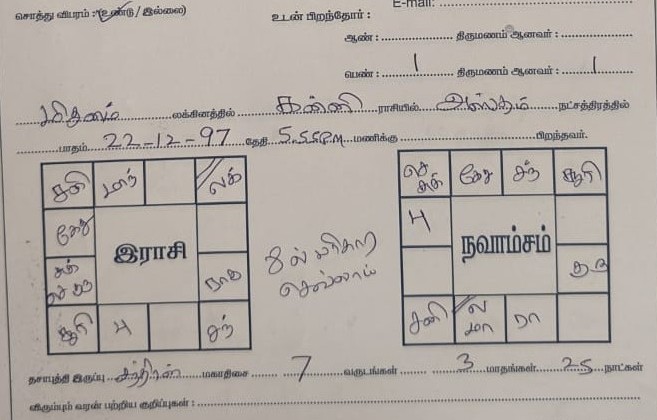 சொத்து விபரம் : (உண்டு / இல்லை) உடன் பிறந்தோர் : E-mail:
ஆண் : திருமணம் ஆனவர் :
பெண் : 1 திருமணம் ஆனவர் : 1
மிதுனம் லக்கினத்தில் கன்னி ராசியில் அஸ்தம் நட்சத்திரத்தில்
பாதம் 22-12-97 தேதி 5.55 P.M மணிக்கு பிறந்தவர்.
சனி மாந் லக் செ சுக் கேது சந் சூரி
கேது இராசி 4 நவாம்சம்
சுக் செ குரு ராகு 8 ல் பரிகார செவ்வாய் குரு
சூரி 4 சந் சனி ல மா ரா
தசாபுத்தி இருப்பு சந்திரன் மகாதிசை 7 வருடங்கள் 3 மாதங்கள் 25 நாட்கள்
விரும்பும் வரன் பற்றிய குறிப்புகள் :